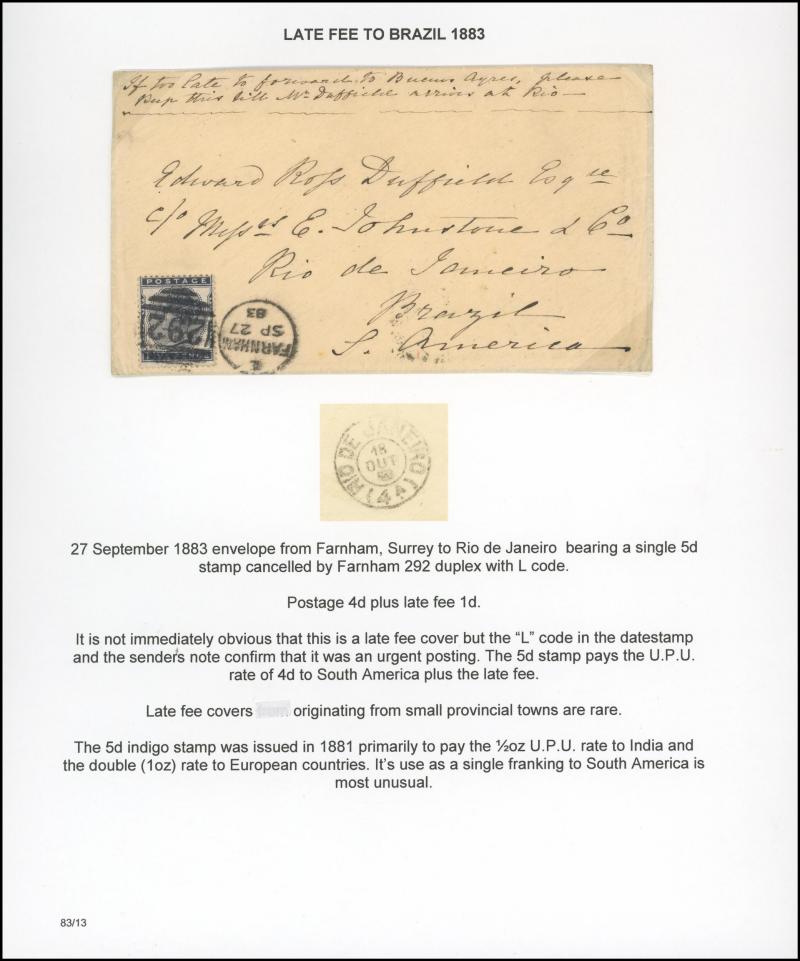 LATE FEE TO BRAZIL 1883
If too late to forward to Buenos Ayres, please
Keep this till Mr. Duffield arrives at Rio—
Edward Ross Duffield Esqre
c/o Messrs E. Johnstone & Co
Rio de Janeiro
Brazil
S. America
POSTAGE
292
FARNHAM
L
SP 27
83
RIO DE JANEIRO
18
OUT
(4A)
27 September 1883 envelope from Farnham, Surrey to Rio de Janeiro bearing a single 5d
stamp cancelled by Farnham 292 duplex with L code.
Postage 4d plus late fee 1d.
It is not immediately obvious that this is a late fee cover but the “L” code in the datestamp
and the senders note confirm that it was an urgent posting. The 5d stamp pays the U.P.U.
rate of 4d to South America plus the late fee.
Late fee covers originating from small provincial towns are rare.
The 5d indigo stamp was issued in 1881 primarily to pay the ½oz U.P.U. rate to India and
the double (1oz) rate to European countries. It’s use as a single franking to South America is
most unusual.
83/13